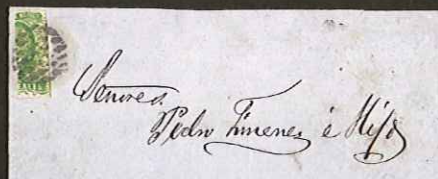 Senores
Pedro Jimenes é Hijo